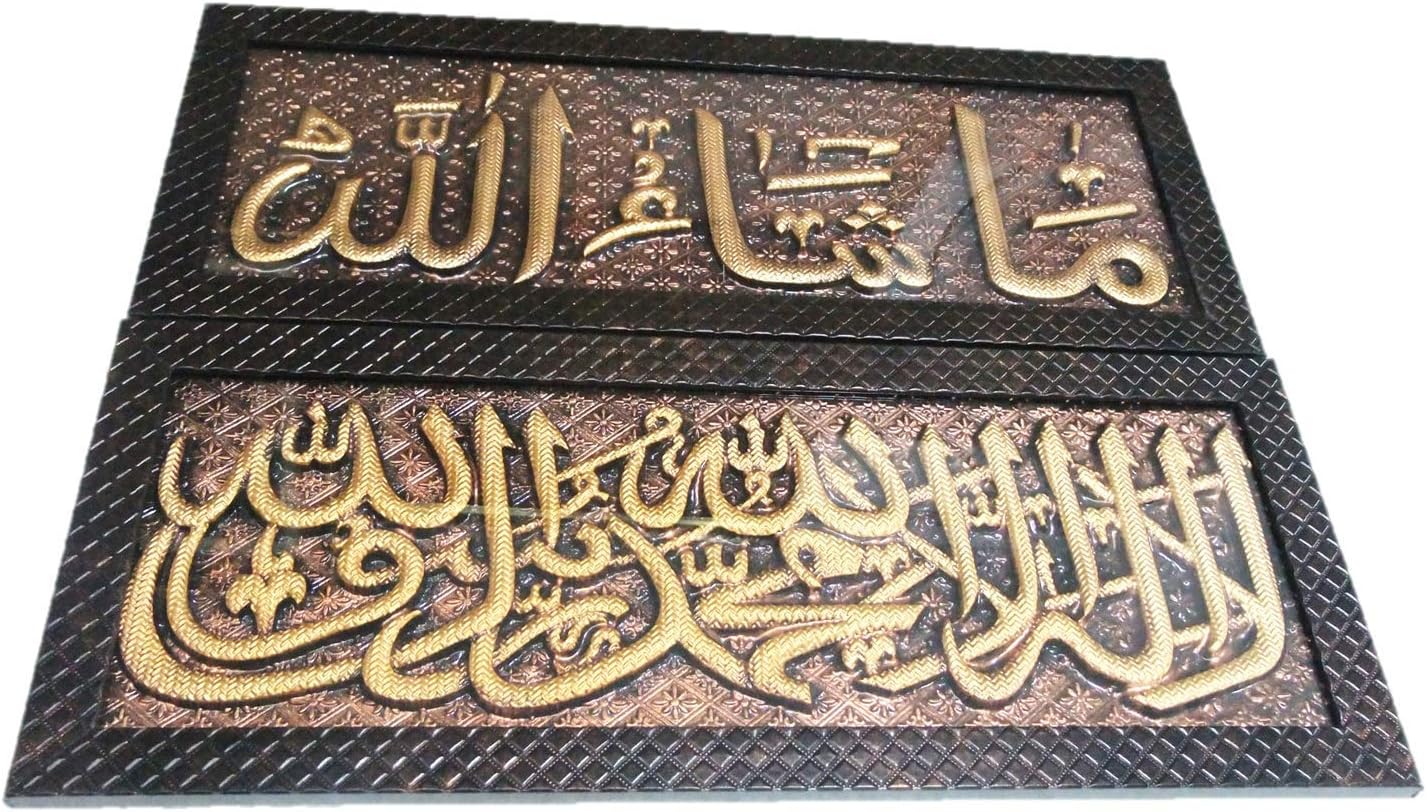 مَا شَاءَ اللّٰه
لا اله الا الله محمد رسول الله